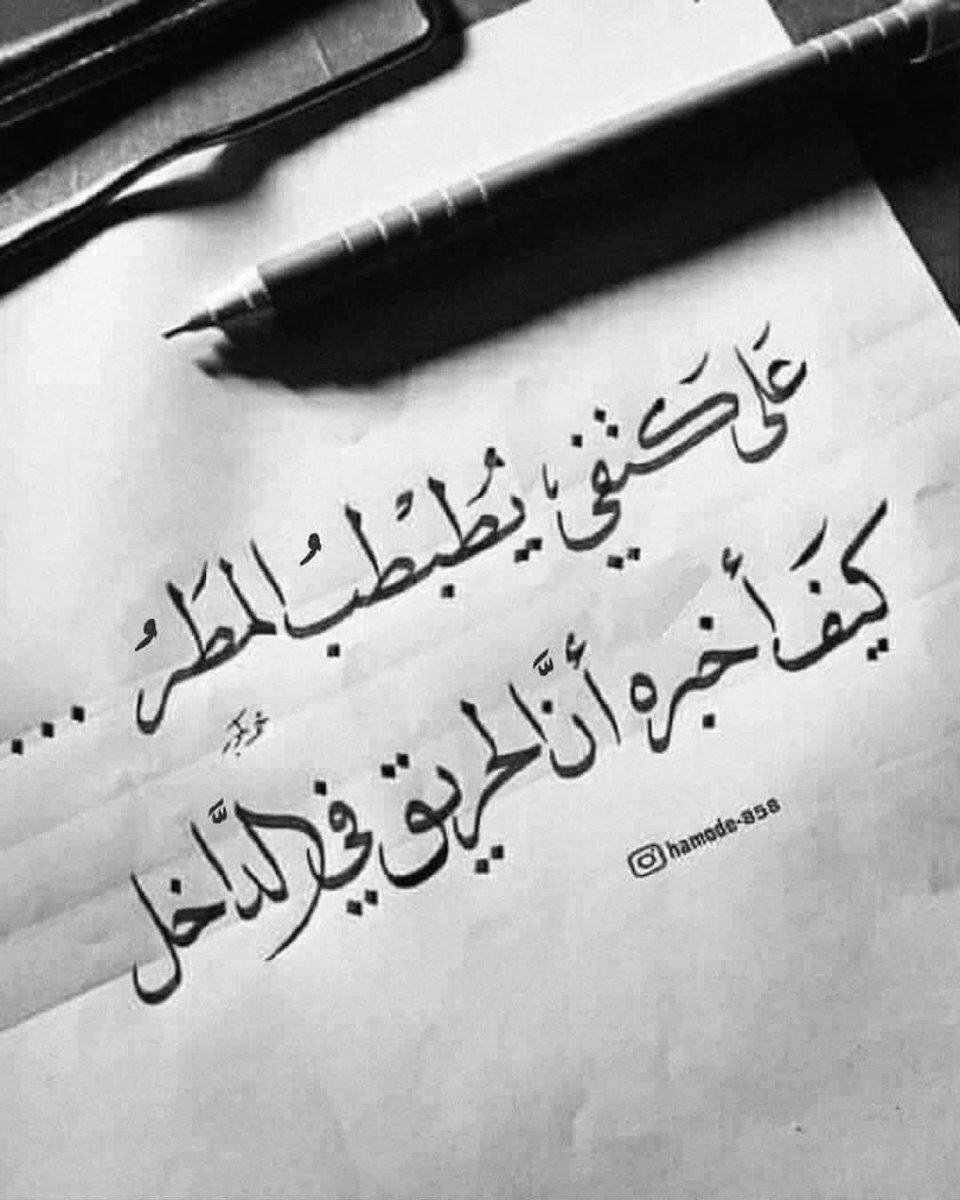 عَلى كَتفي يُطَبْطبُ المطَرُ ...
كيفَ أخبره أنَّ الحريق في الدَّاخل
hamode-858